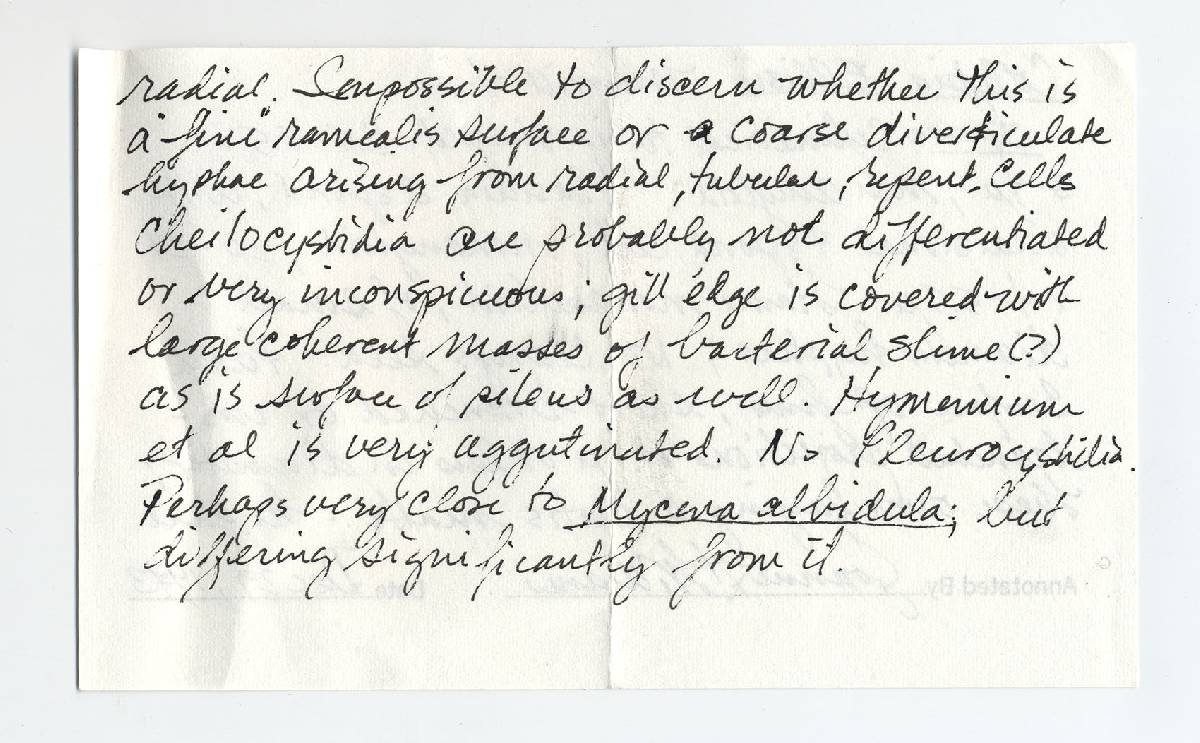 radial. Impossible to discern whether this is
a "fine" ramealis surface or a coarse diverticulate
hyphae arising from radial, tubular, repent, cells
Cheilocystidia are probably not differentiated
or very inconspicuous; gill edge is covered with
large coherent masses of bacterial slime (?)
as is surface of pileus as well. Hymenium
et al is very aggutinated. No Pleurocystidia.
Perhaps very close to Mycena albidula; but
differing significantly from it.
Annotated By Date